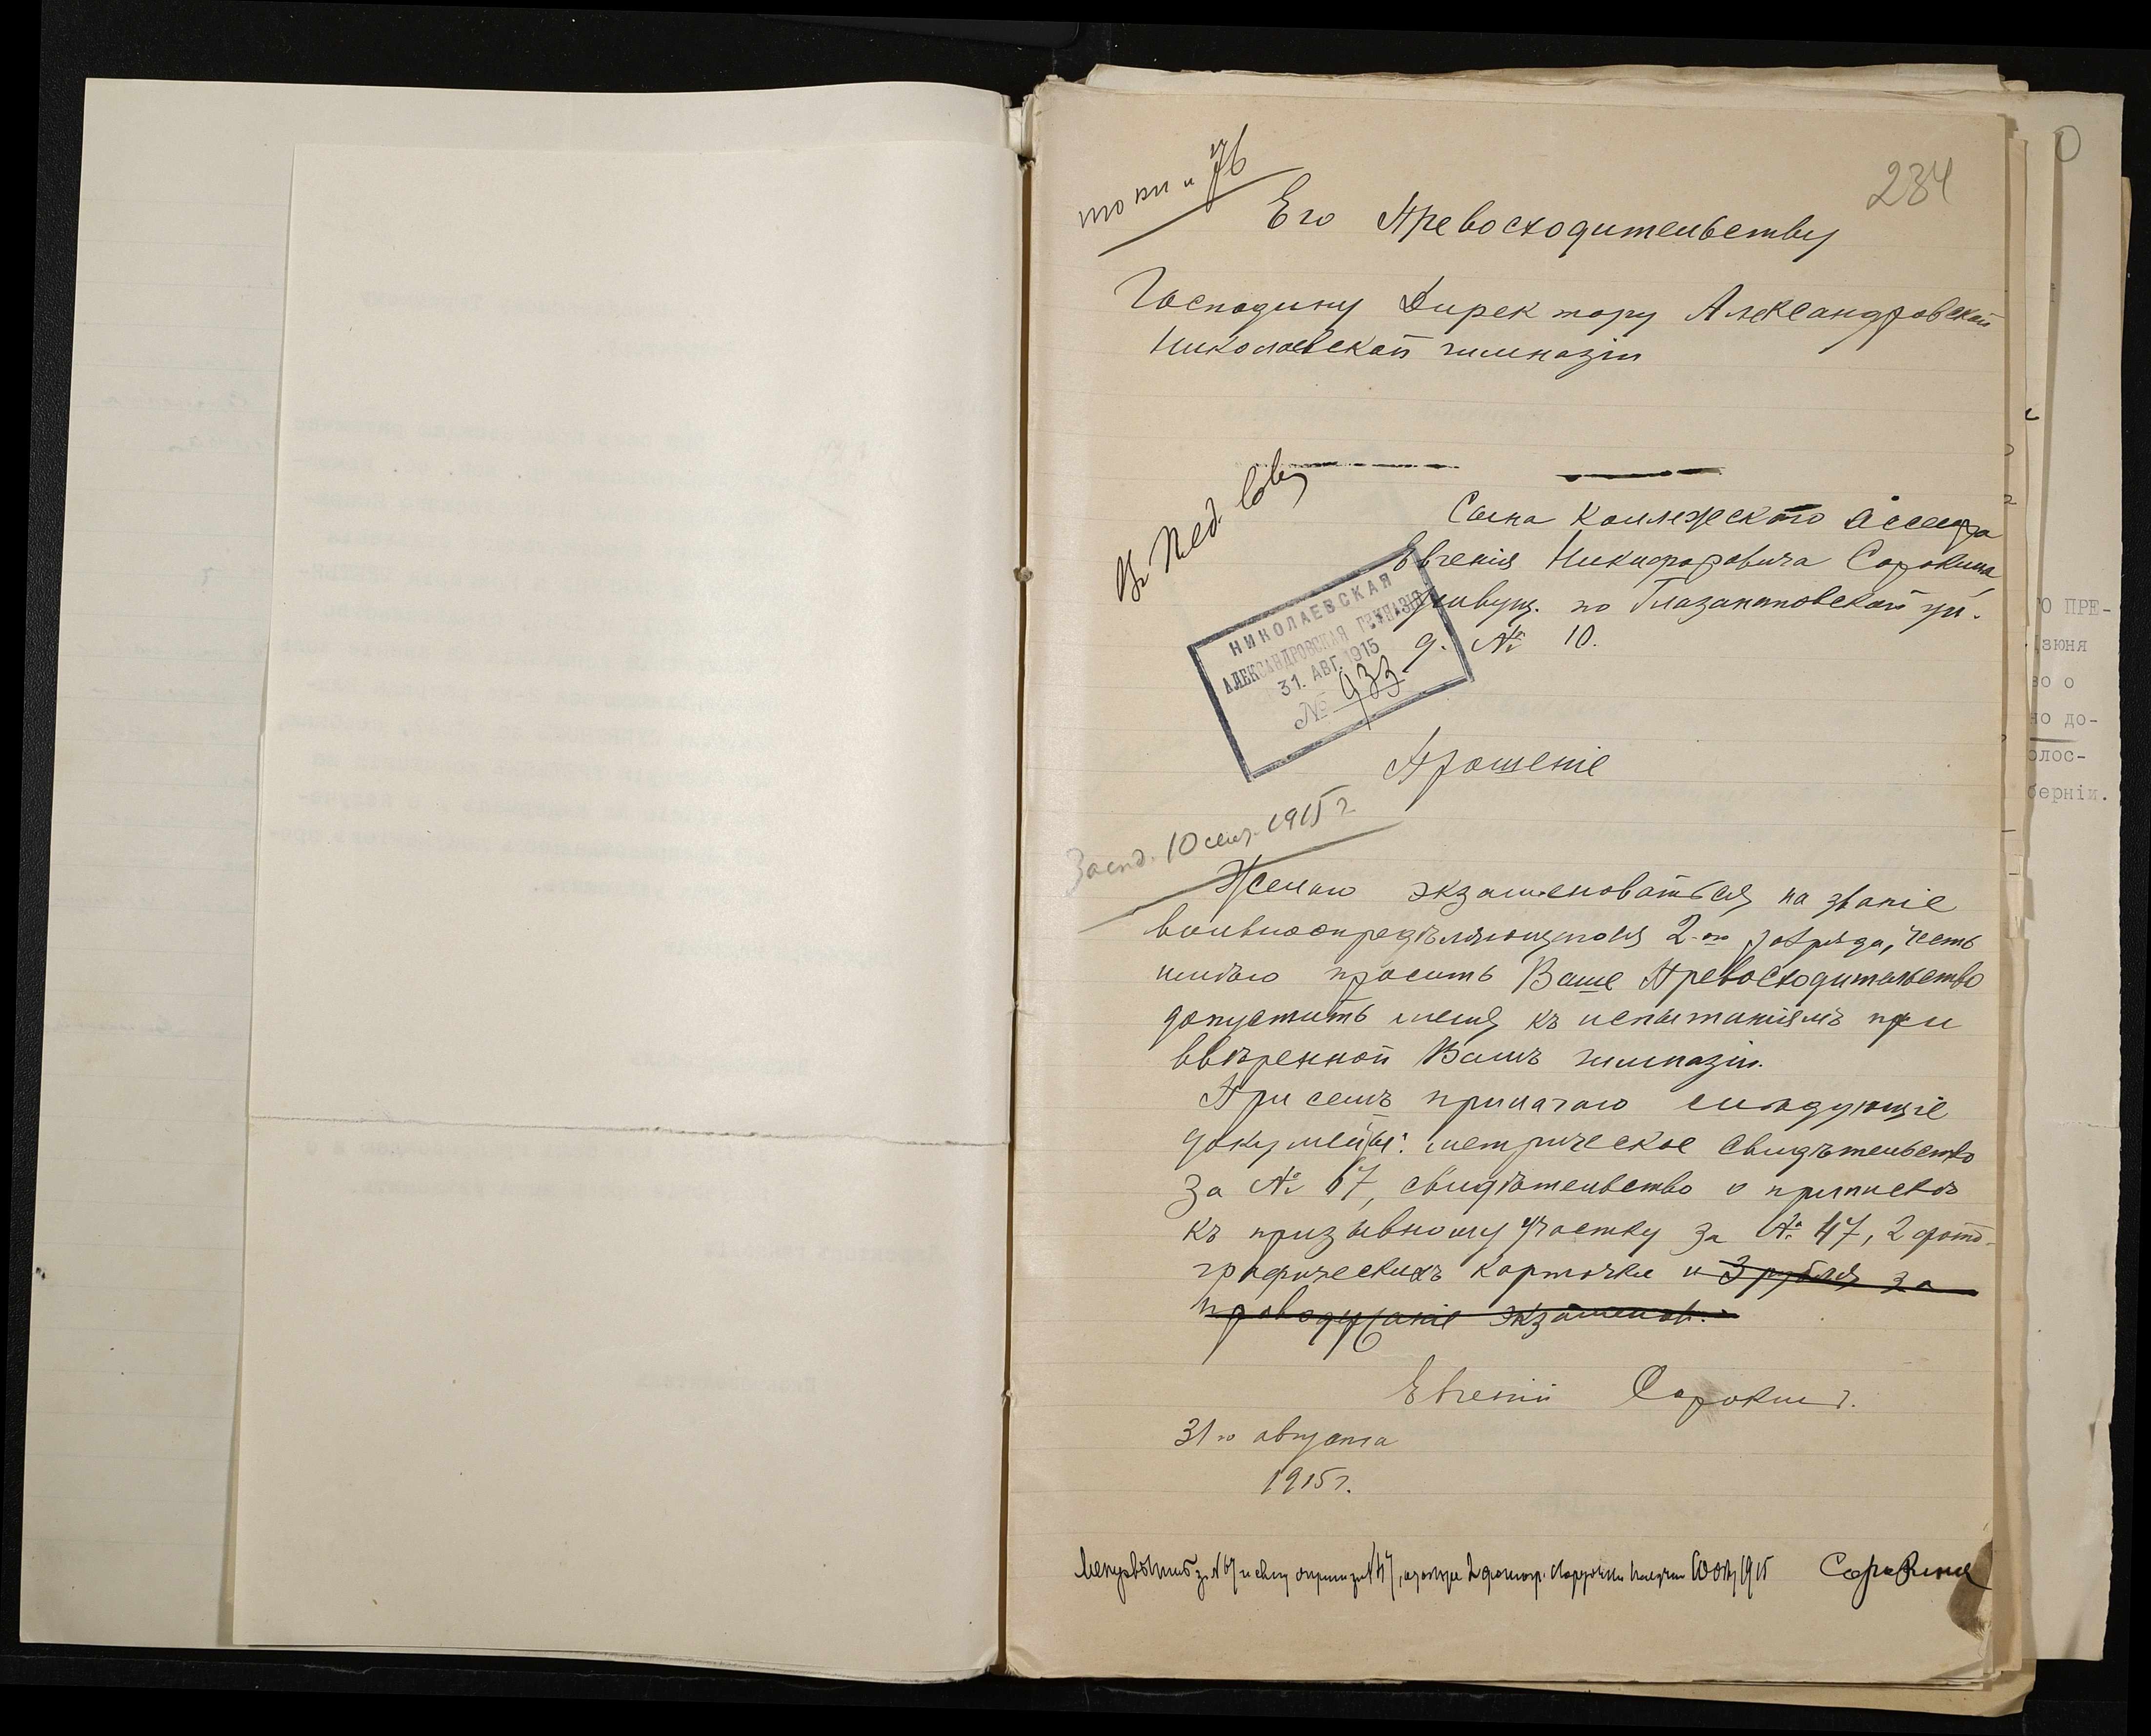 234
Его Превосходительству
Господину Директору Александровской
Николаевской гимназіи
Въ Пед. Совѣ
Сына Коллежскаго Ассесора
Евгенія Никифоровича Сорокина
живущ. по Глазенаповской ул.
д. № 10.
НИКОЛАЕВСКАЯ
АЛЕКСАНДРОВСКАЯ ГИМНАЗІЯ
31. АВГ. 1915
№ 933
Прошеніе
Засѣд. 10 сент. 1915 г
Желаю экзаменоваться на званіе
вольноопредѣляющагося 2-го разряда, честь
имѣю просить Ваше Превосходительство
допустить меня къ испытаніямъ при
ввѣренной Вамъ гимназіи.
При семъ прилагаю слѣдующіе
документы: метрическое свидѣтельство
за № 67, свидѣтельство о припискѣ
къ призывному участку за № 47, 2 фото-
графическихъ карточки и 3 рубля за
экзаменов.
Евгеній Сорокинъ.
31-го августа
1915 г.
1915 Сорокинъ
ГО ПРЕ-
зюня
во о
но до-
олос-
берніи.